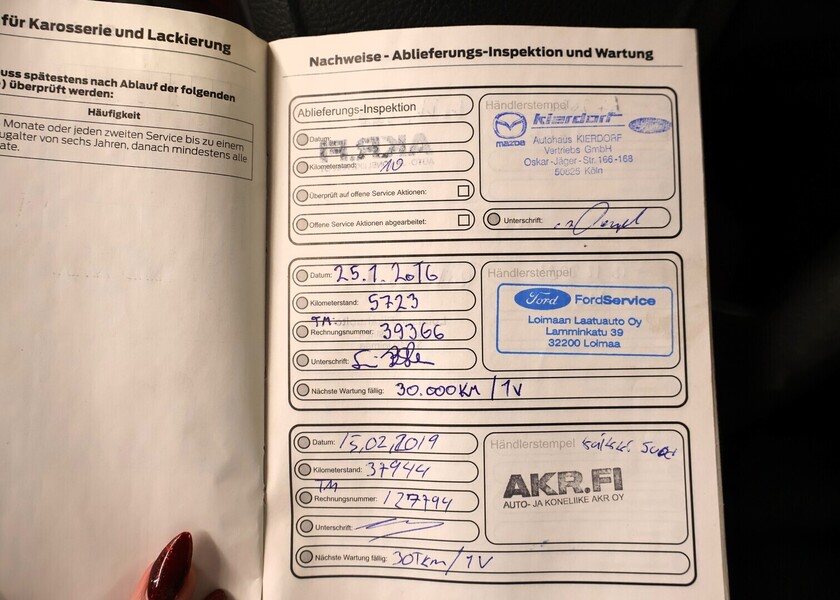 für Karosserie und Lackierung
uss spätestens nach Ablauf der folgenden
) überprüft werden:
Häufigkeit
Monate oder jeden zweiten Service bis zu einem
ugalter von sechs Jahren, danach mindestens alle
ate.
Nachweise - Ablieferungs-Inspektion und Wartung
Ablieferungs-Inspektion
Datum:
Kilometerstand: 10
Überprüft auf offene Service Aktionen:
Offene Service Aktionen abgearbeitet:
Händlerstempel
mazda
Kierdorf
Ford
Autohaus KIERDORF
Vertriebs GmbH
Oskar-Jäger-Str. 166-168
50825 Köln
Unterschrift:
Datum: 25.1.2016
Kilometerstand: 5723
TM:
Rechnungsnummer: 39366
Unterschrift:
Nächste Wartung fällig: 30.000KM/1V
Händlerstempel
Ford FordService
Loimaan Laatuauto Oy
Lamminkatu 39
32200 Loimaa
Datum: 15,02,2019
Kilometerstand: 37944
TM
Rechnungsnummer: 127794
Unterschrift:
Nächste Wartung fällig: 30Tkm/1V
Händlerstempel
AKR.FI
AUTO- JA KONELIIKE AKR OY